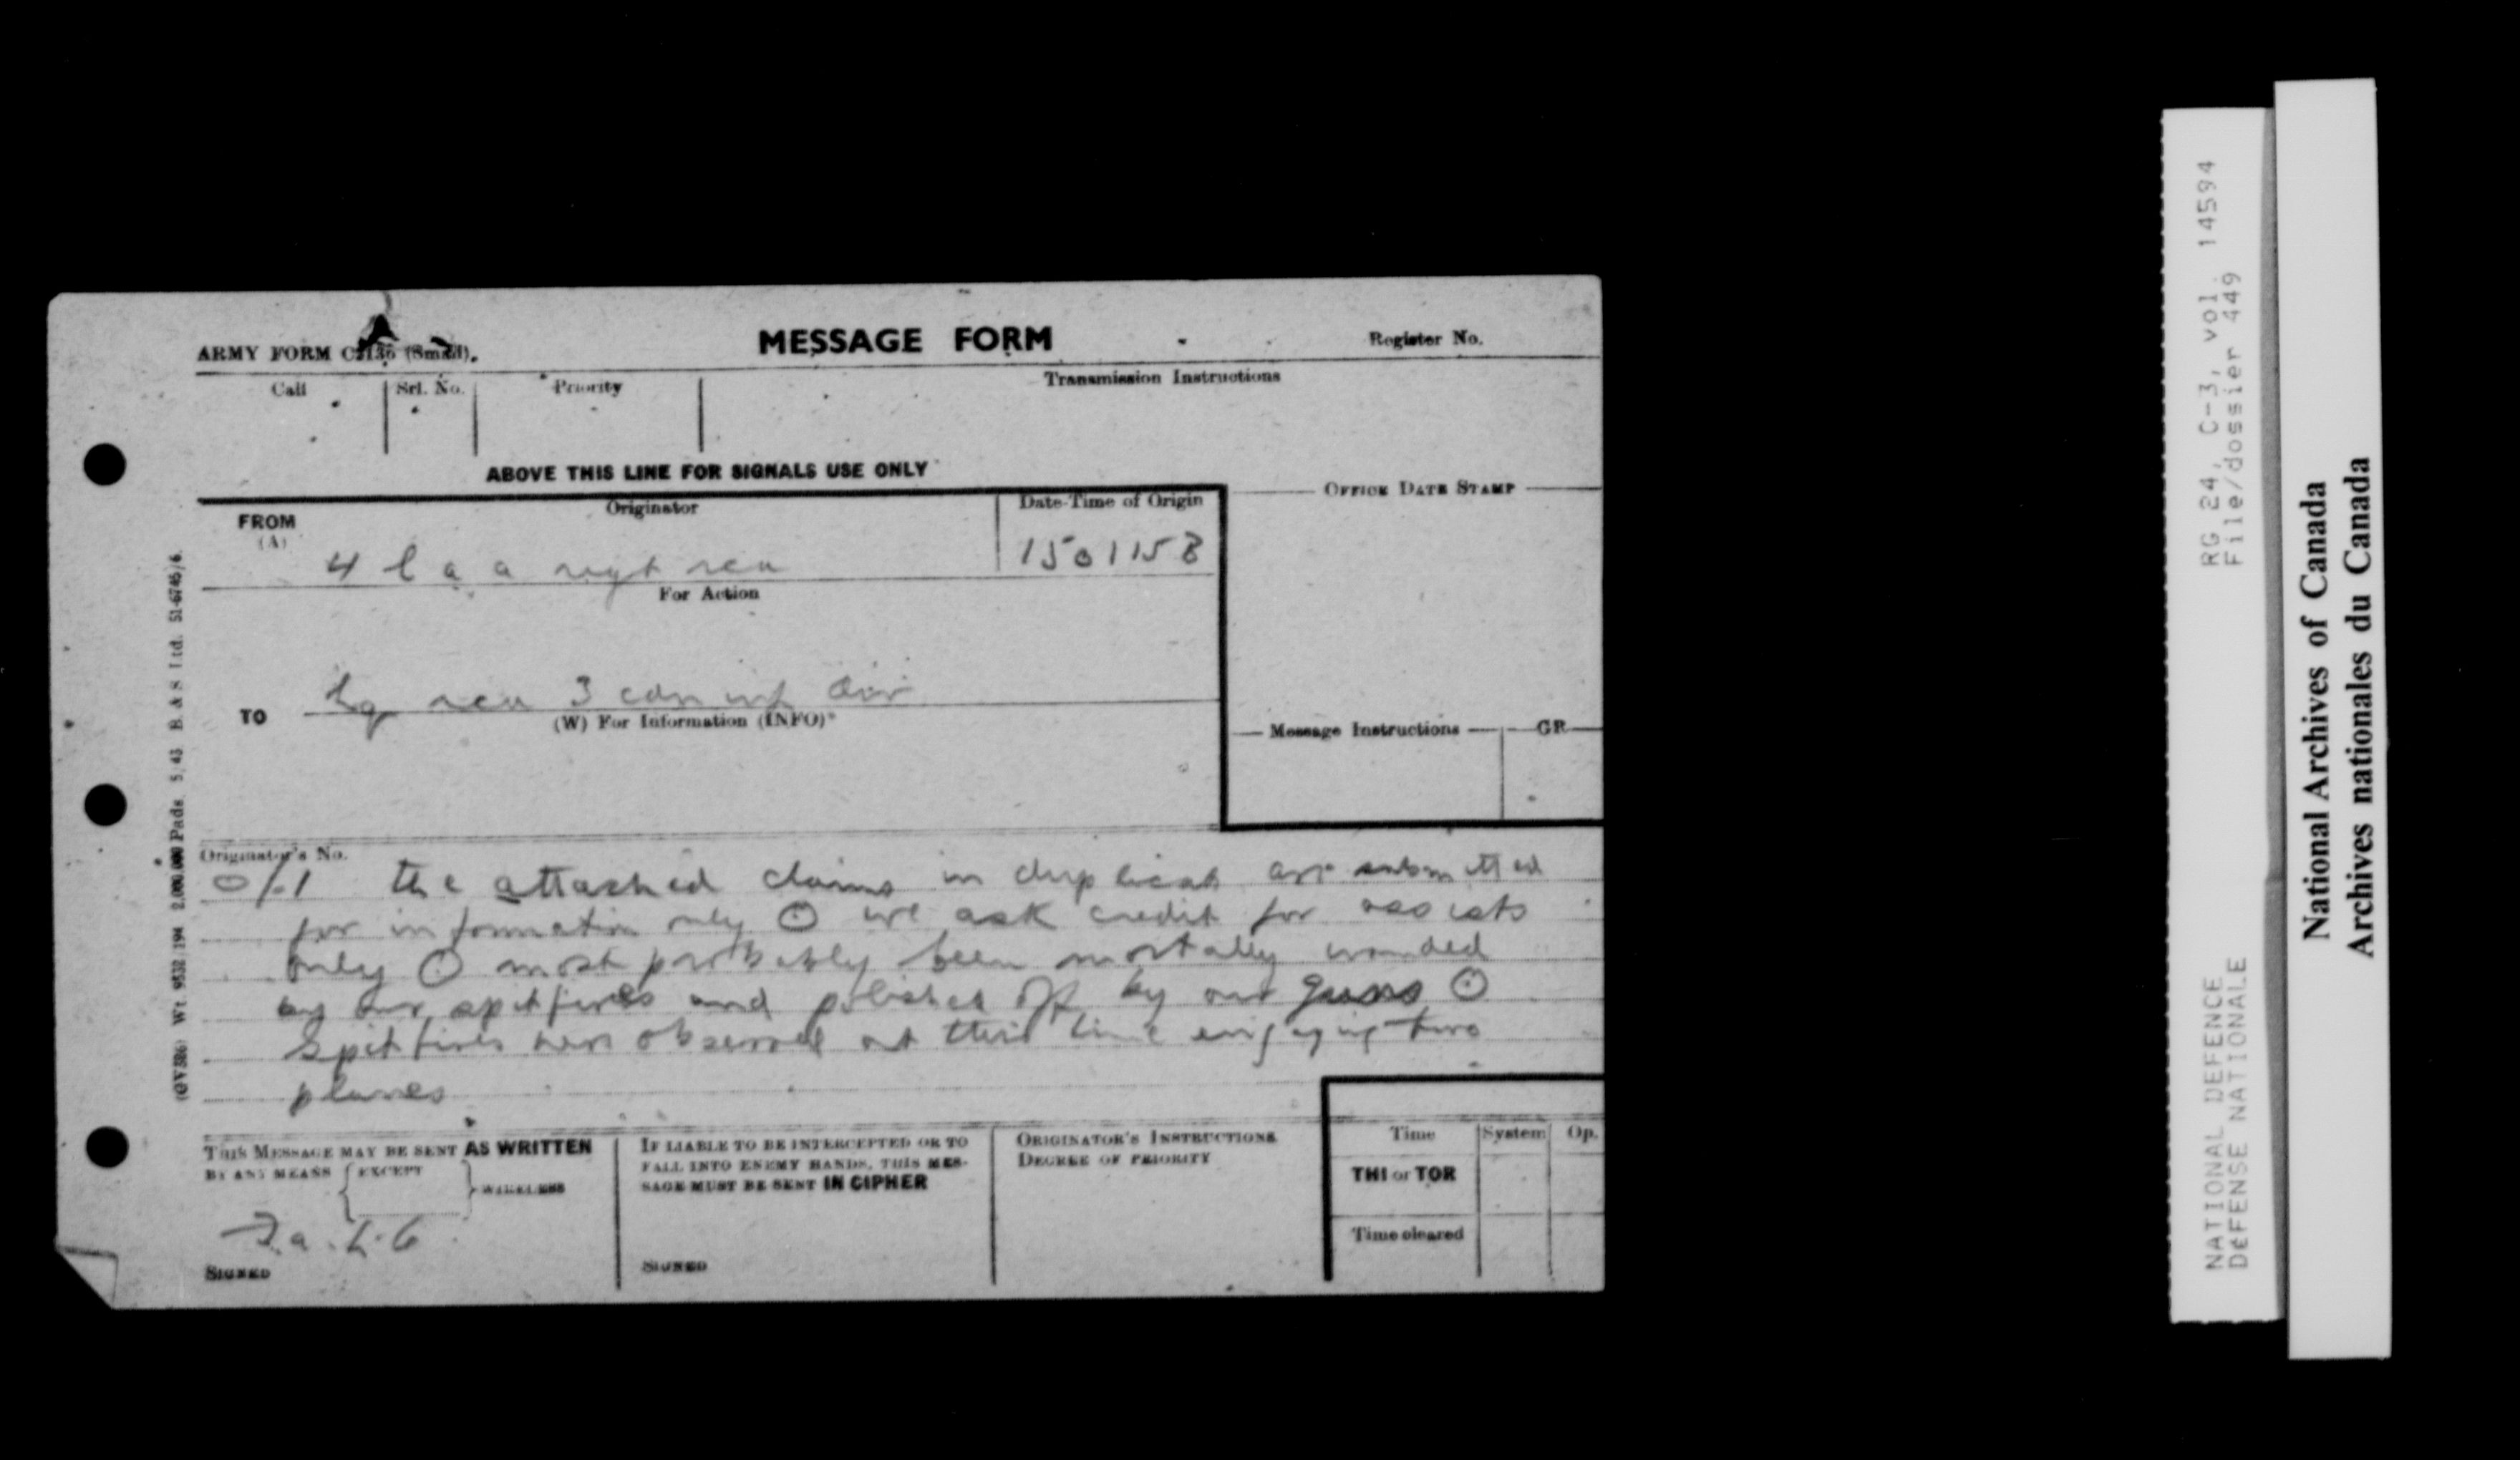 ARMY FORM C2136 (Small).
MESSAGE FORM
Register No.
Call
Srl. No.
Priority
Transmission Instructions
ABOVE THIS LINE FOR SIGNALS USE ONLY
FROM
(A)
Originator
Date-Time of Origin
OFFICE DATE STAMP
4 l a a regt rca
150115B
For Action
TO
hq rca 3 cdn inf div
(W) For Information (INFO)
Message Instructions
GR
Originator's No.
0/1 the attached claims in duplicate are submitted
for information only ⊙ we ask credit for assists
only ⊙ most probably been mortally wounded
by our spitfires and polished off by our guns ⊙
Spitfires were observed at this time engaging two
planes
THIS MESSAGE MAY BE SENT AS WRITTEN
BY ANY MEANS
EXCEPT
WIRELESS
SIGNED
IF LIABLE TO BE INTERCEPTED OR TO
FALL INTO ENEMY HANDS, THIS MES-
SAGE MUST BE SENT IN CIPHER
SIGNED
ORIGINATOR'S INSTRUCTIONS
DEGREE OF PRIORITY
Time
System
Op.
THI or TOR
Time cleared
Wt. 9532/194 2,000,000 Pads. 5/43 B. & S. Ltd. 51-6746/6.
RG 24, C-3, vol. 14594
File/dossier 449
NATIONAL DEFENCE
DEFENSE NATIONALE
National Archives of Canada
Archives nationales du Canada